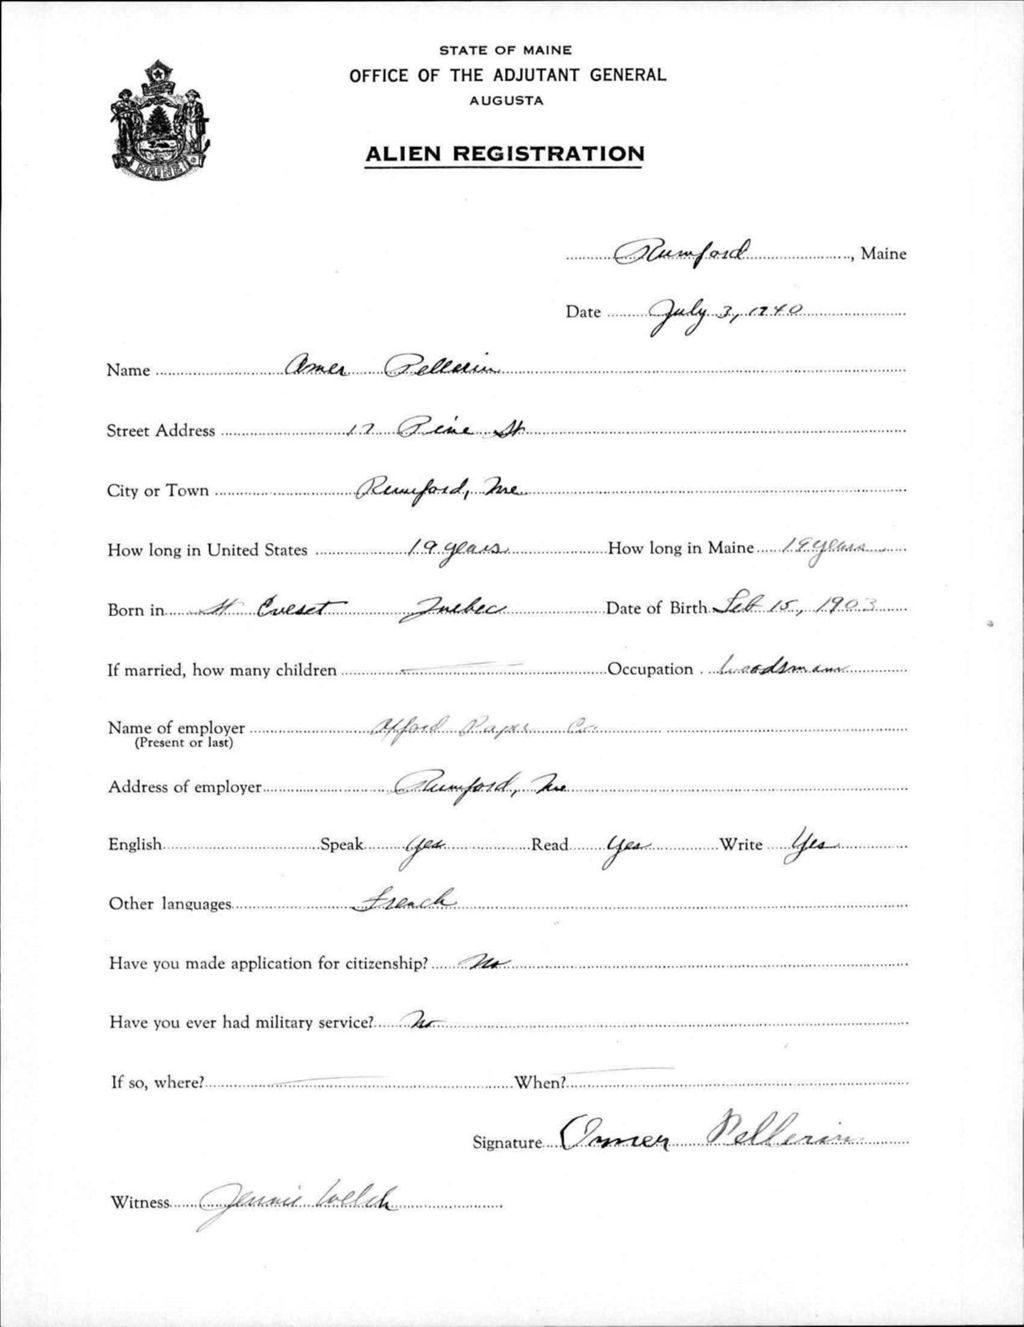 STATE OF MAINE
OFFICE OF THE ADJUTANT GENERAL
AUGUSTA
ALIEN REGISTRATION
MAINE
Rumford, Maine
Date July 3, 1940
Name Omer Pellerin
Street Address 17 Pine St
City or Town Rumford, Me.
How long in United States 19 years How long in Maine 19 years
Born in St Quebec Date of Birth Feb 15, 1903
If married, how many children Occupation Woodsman
Name of employer Oxford Paper Co.
(Present or last)
Address of employer Rumford, Me
English Speak Yes Read Yes Write Yes
Other languages French
Have you made application for citizenship? No
Have you ever had military service? No
If so, where? When?
Signature Omer Pellerin
Witness Jennie Welch